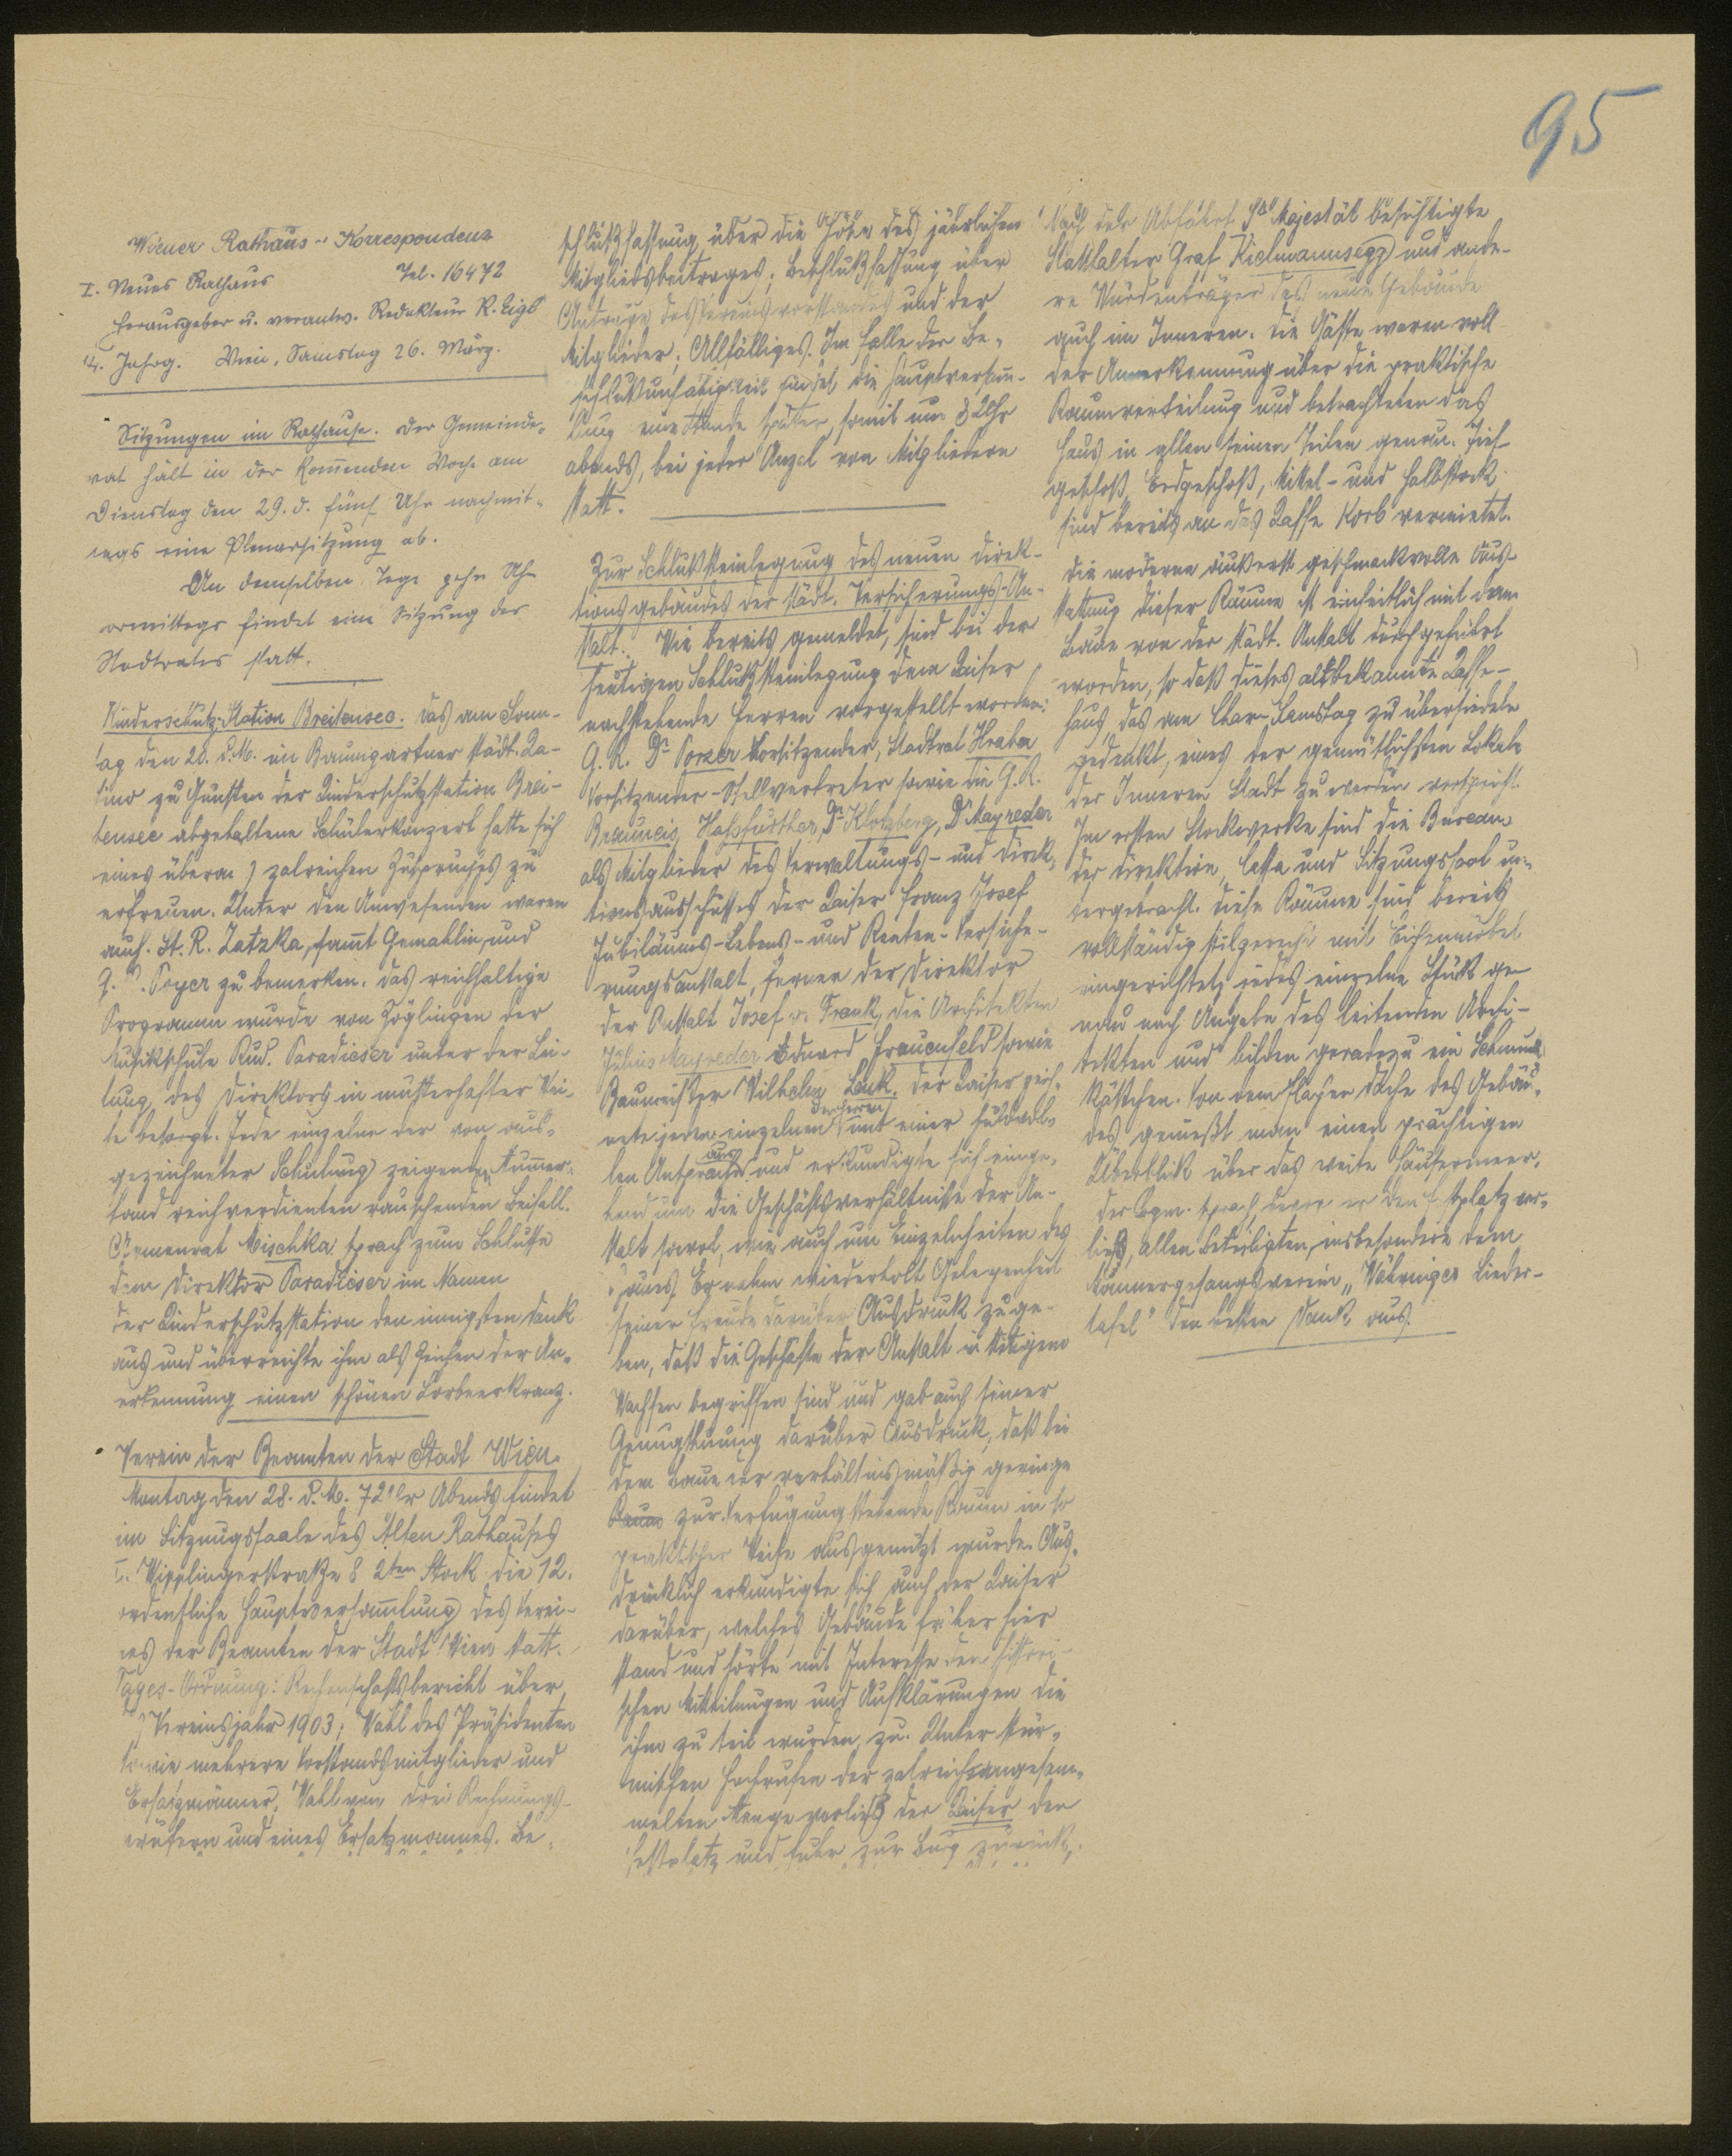 95
Wiener Rathaus-Korrespondenz
I. Neues Rathaus Tel. 16472
Herausgeber u. verantw. Redakteur R. Eigl
14. Jahrg. Wien, Samstag 26. März.
Sitzungen im Rathause. Der Gemeinde-
rat hält in der kommenden Woche am
Dienstag den 29. d. fünf Uhr nachmit-
tags eine Plenarsitzung ab.
An demselben Tage zehn Uhr
vormittags findet eine Sitzung des
Stadtrates statt.
Kinderschutz-Station Breitensee. Das am Sonn-
tag den 20. d.M. im Baumgartner städt. Ka-
sino zu Gunsten der Kinderschutzstation Brei-
tensee abgehaltene Schülerkonzert hatte sich
eines überaus zalreichen Zuspruches zu
erfreuen. Unter den Anwesenden waren
auch St. R. Zatzka, samt Gemahlin, und
G. R. Poyer zu bemerken. Das reichhaltige
Programm wurde von Zöglingen der
Musikschule Rud. Paradieser unter der Lei-
tung des Direktors in musterhafter Wei-
se besorgt. Jede einzelne der von aus-
gezeichneter Schulung zeigenden Nummern
fand reichverdienten rauschenden Beifall.
Armenrat Mischka sprach zum Schlusse
dem Direktor Paradieser im Namen
der Kinderschutzstation den innigsten Dank
aus und überreichte ihm als Zeichen der An-
erkennung einen schönen Lorbeerkranz.
Verein der Beamten der Stadt Wien.
Montag den 28. d.M. 7 Uhr Abends findet
im Sitzungssaale des Alten Rathauses
I. Wipplingerstraße 8 2ten Stock die 12.
ordentliche Hauptversammlung des Verei-
nes der Beamten der Stadt Wien statt.
Tages-Ordnung: Rechenschaftsbericht über
das Vereinsjahr 1903; Wahl des Präsidenten
sowie mehrere Vorstandsmitglieder und
Ersatzmänner, Wahl von drei Rechnungs-
prüfern und eines Ersatzmannes. Be-
schlußfassung über die Höhe des jährlichen
Mitgliedsbeitrages; Beschlußfassung über
Anträge des Vereinsvorstandes und der
Mitglieder; Allfälliges. Im Falle der Be-
schlußunfähigkeit findet die Hauptversamm-
lung eine Stunde später, somit um 8 Uhr
abends, bei jeder Anzal von Mitgliedern
statt.
Zur Schlußsteinlegung des neuen Direk-
tionsgebäudes der städt. Versicherungs-An-
stalt. Wie bereits gemeldet, sind bei der
heutigen Schlußsteinlegung dem Kaiser
nachstehende Herren vorgestellt worden:
G. R. Dr. Porzer Vorsitzender, Stadtrat Hraba
Vorsitzender-Stellvertreter sowie die G. R.
Brauneis, Hassfurther, Dr. Klotzberg, Dr. Mayreder
als Mitglieder des Verwaltungs- und Direk-
tionsausschusses der Kaiser Franz Josef
Jubiläums-Lebens- und Renten-Versiche-
rungsanstalt, ferner der Direktor
der Anstalt Josef v. Frank, die Architekten
Julius Mayreder Eduard Frauenfeld sowie
Baumeister Wilhelm. Der Kaiser zeich-
nete jeden einzelnen der Herren mit einer huldvol-
len Ansprache aus und erkundigte sich einge-
hend um die Geschäftsverhältnisse der An-
stalt sowol, wie auch um Einzelnheiten des
Baues. Er nahm wiederholt Gelegenheit
seiner Freude darüber Ausdruck zu ge-
ben, daß die Geschäfte der Anstalt in stetigem
Wachsen begriffen sind und gab auch seiner
Genugthuung darüber Ausdruck, daß bei
dem Baue der verhältnismäßig geringe
Raum zur Verfügung stehende Raum in so
praktischer Weise ausgenützt wurde. Aus-
drücklich erkundigte sich auch der Kaiser
darüber, welches Gebäude früher hier
stand und hörte mit Interesse den histori-
schen Mitteilungen und Aufklärungen die
ihm zu teil wurden, zu. Unter stür-
mischen Hochrufen der zalreich angesam-
melten Menge verließ der Kaiser den
Festplatz und fuhr zur Burg zurück.
Nach der Abfahrt Sr. Majestät besichtigte
Statthalter Graf Kielmannsegg und ande-
re Würdenträger das neue Gebäude
auch im Inneren. Die Gäste waren voll
der Anerkennung über die praktische
Raumverteilung und betrachteten das
Haus in allen seinen Teilen genau. Tief-
geschoß, Erdgeschoß, Mittel- und Halbstock
sind bereits an das Kaffe Korb vermietet.
Die moderne äußerst geschmackvolle Aus-
stattung dieser Räume ist einheitlich mit dem
Baue von der städt. Anstalt durchgeführt
worden, so daß dieses altbekannte Kaffe-
haus, das am Char-Samstag zu übersiedeln
gedenkt, eines der gemütlichsten Lokale
der Inneren Stadt zu werden verspricht.
Im ersten Stockwerke sind die Bureaux
der Direktion, Cassa und Sitzungssaal un-
tergebracht. Diese Räume sind bereits
vollständig stilgerecht mit Eichenmöbel
eingerichtet, jedes einzelne Stück ge-
nau nach Angabe des leitenden Archi-
tekten und bilden geradezu ein Schmuck-
kästchen. Von dem flachen Dache des Gebäu-
des genießt man einen prächtigen
Überblick über das weite Häusermeer.
Der Bgm. sprach, bevor er den Festplatz ver-
ließ, allen Beteiligten, insbesondere dem
Männergesangsverein „Währinger Lieder-
tafel" den besten Dank aus.